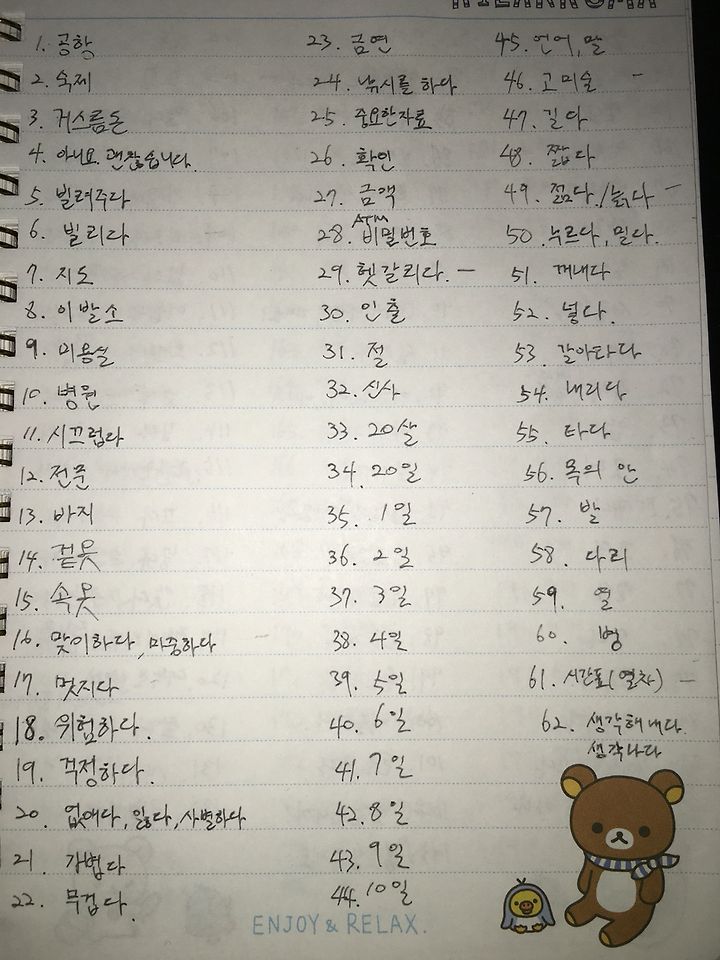 1. 공항
2. 숙제
3. 거스름돈
4. 아니요. 괜찮습니다.
5. 빌려주다
6. 빌리다
7. 지도
8. 이발소
9. 미용실
10. 병원
11. 시끄럽다
12. 전문
13. 바지
14. 겉옷
15. 속옷
16. 맞이하다, 마중하다 -
17. 멋지다
18. 위험하다.
19. 걱정하다.
20. 없애다, 잃다, 사별하다
21. 가볍다
22. 무겁다.
23. 금연
24. 낚시를 하다
25. 중요한 자료
26. 확인
27. 금액
ATM
28. 비밀번호
29. 헷갈리다. -
30. 인출
31. 절
32. 신사
33. 20살
34. 20일
35. 1일
36. 2일
37. 3일
38. 4일
39. 5일
40. 6일
41. 7일
42. 8일
43. 9일
44. 10일
45. 언어, 말
46. 고미술 -
47. 길다
48. 짧다
49. 젊다./늙다 -
50. 누르다, 밀다.
51. 꺼내다
52. 넣다.
53. 갈아타다
54. 내리다
55. 타다
56. 목의 안
57. 발
58. 다리
59. 열
60. 병
61. 시간표(열차) -
62. 생각해내다.
생각나다
ENJOY & RELAX.